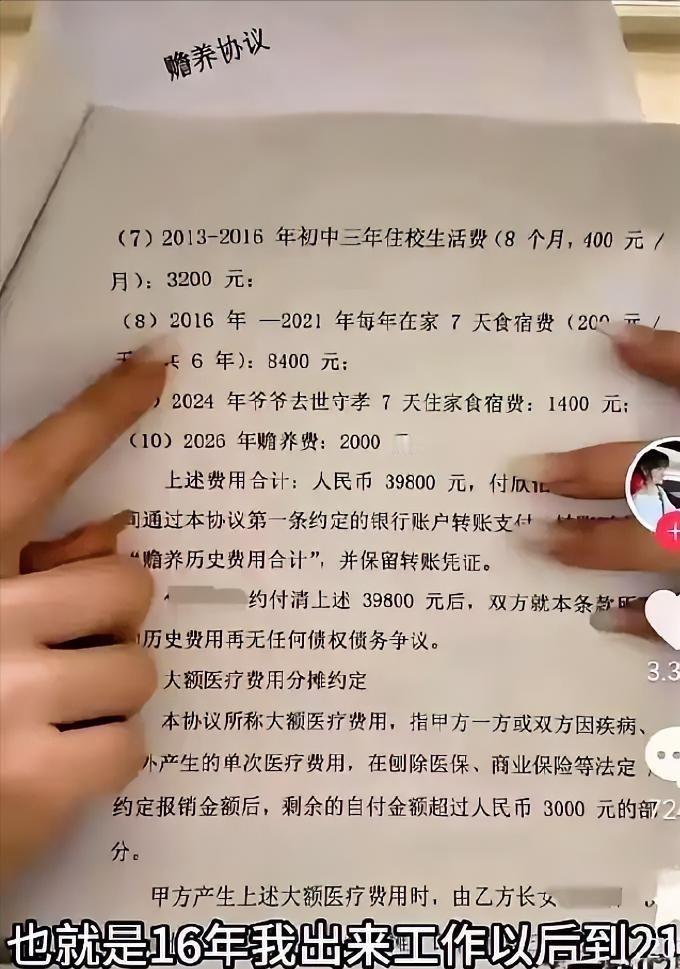 赡养协议
(7) 2013-2016 年初中三年住校生活费(8 个月,400 元/
月): 3200 元;
(8) 2016 年 —2021 年每年在家 7 天食宿费(200 元/
6 年): 8400 元;
2024 年爷爷去世守孝 7 天住家食宿费: 1400 元;
(10) 2026 年赡养费: 2000
上述费用合计: 人民币 39800 元, 付
通过本协议第一条约定的银行账户转账支付
“赡养历史费用合计”, 并保留转账凭证。
约付清上述 39800 元后, 双方就本条款
历史费用再无任何债权债务争议。
大额医疗费用分摊约定
本协议所称大额医疗费用, 指甲方一方或双方因疾病、
外产生的单次医疗费用, 在刨除医保、商业保险等法定
约定报销金额后, 剩余的自付金额超过人民币 3000 元的部
分。
甲方产生上述大额医疗费用时, 由乙方长女
也就是16年我出来工作以后到21
3.3
724